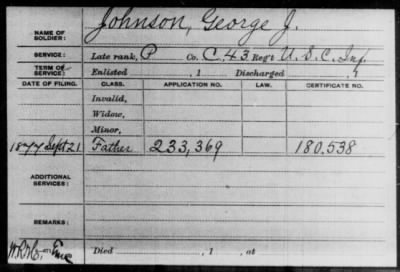 Johnson, George J.
NAME OF SOLDIER:
SERVICE: Late rank, P Co. C. 43 Reg't U. S. C. Inf.
TERM OF SERVICE: Enlisted , 1 Discharged , 1
DATE OF FILING. CLASS. APPLICATION NO. LAW. CERTIFICATE NO.
Invalid,
Widow,
Minor,
1877 Sept 21 Father 233,369 180,538
ADDITIONAL SERVICES:
REMARKS:
Died , 1 , at